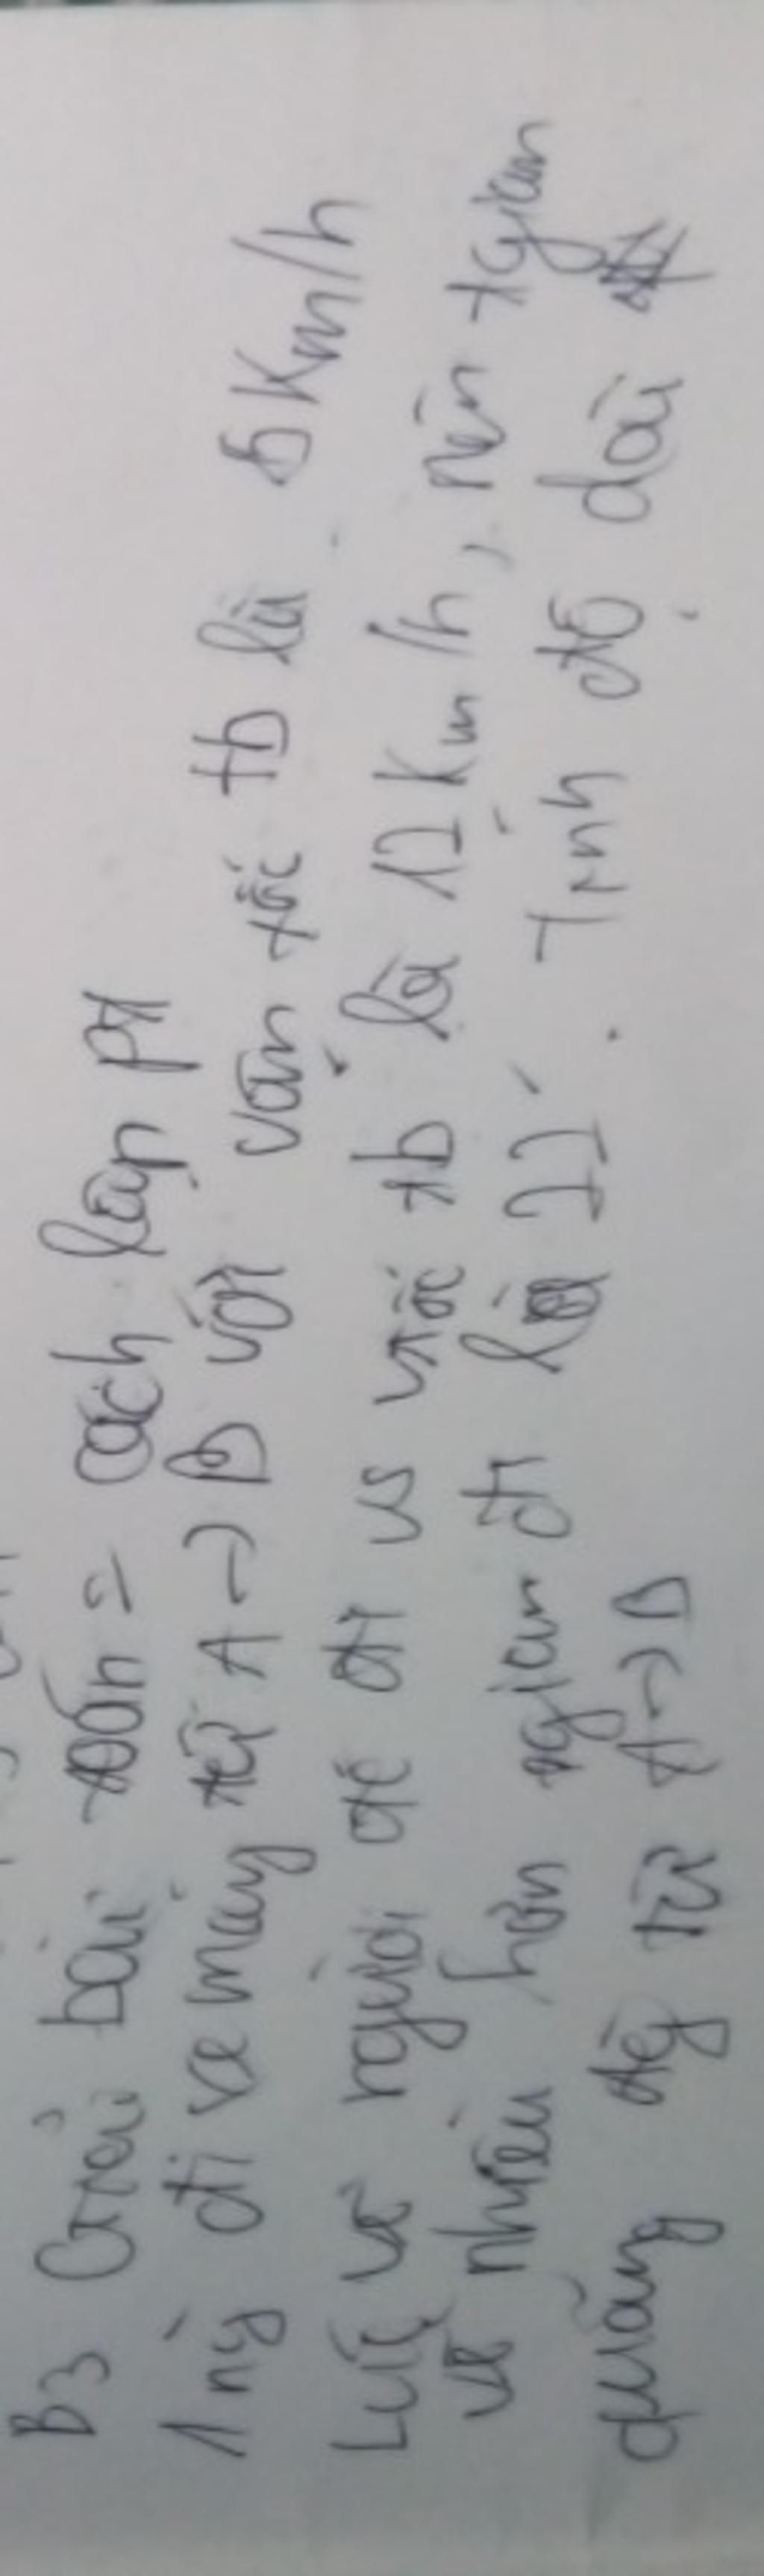 B3 Giải bài toán = cách lập pt
1 ng đi xe máy từ A → B với vận tốc tb là
Lúc về người đó đi vs vtốc tb là 12 km/h, nên tgian
về nhiều hơn tgian đi là Tính độ dài
quãng đg từ A → B